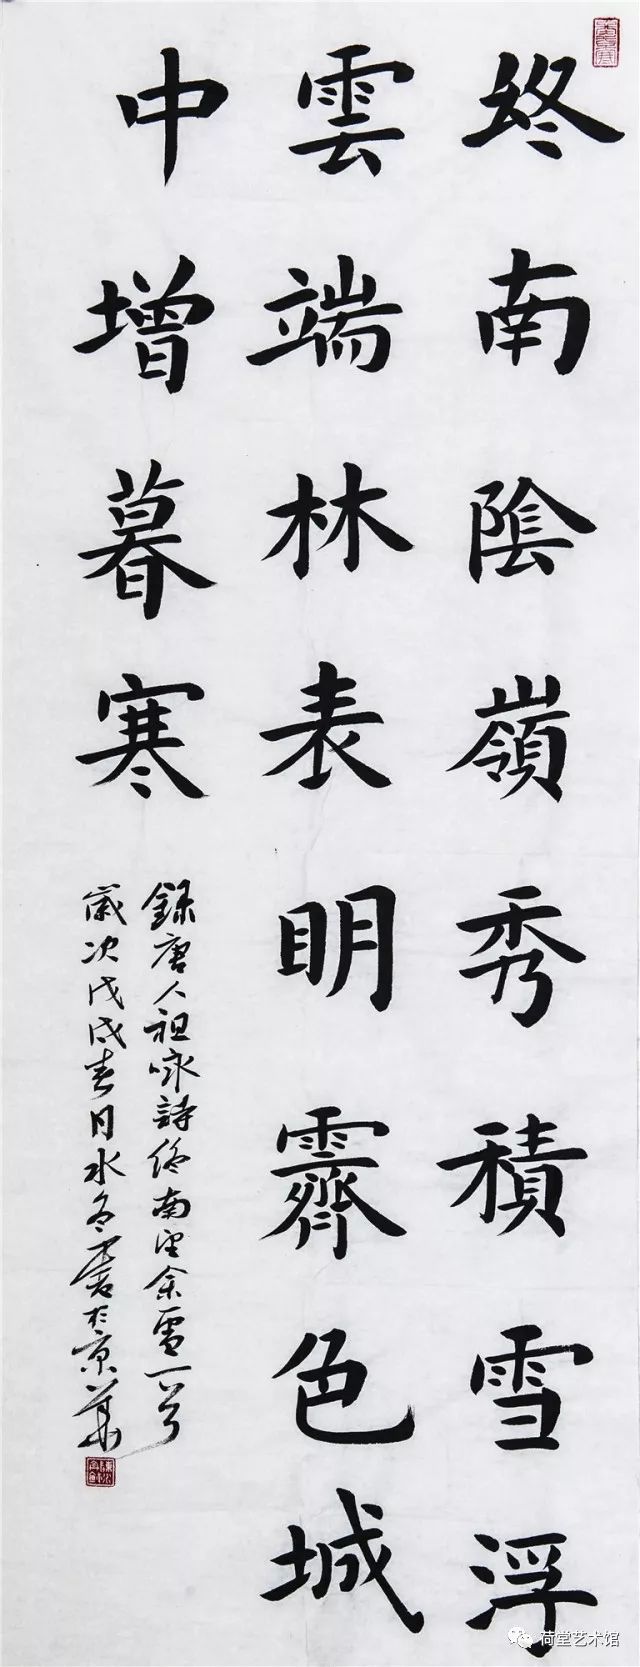 終南陰嶺秀積雪浮
雲端林表明霽色城
中增暮寒
錄唐人祖咏詩終南望余雪一首
歲次戊戌春日水冬書於京華
荷堂艺术馆